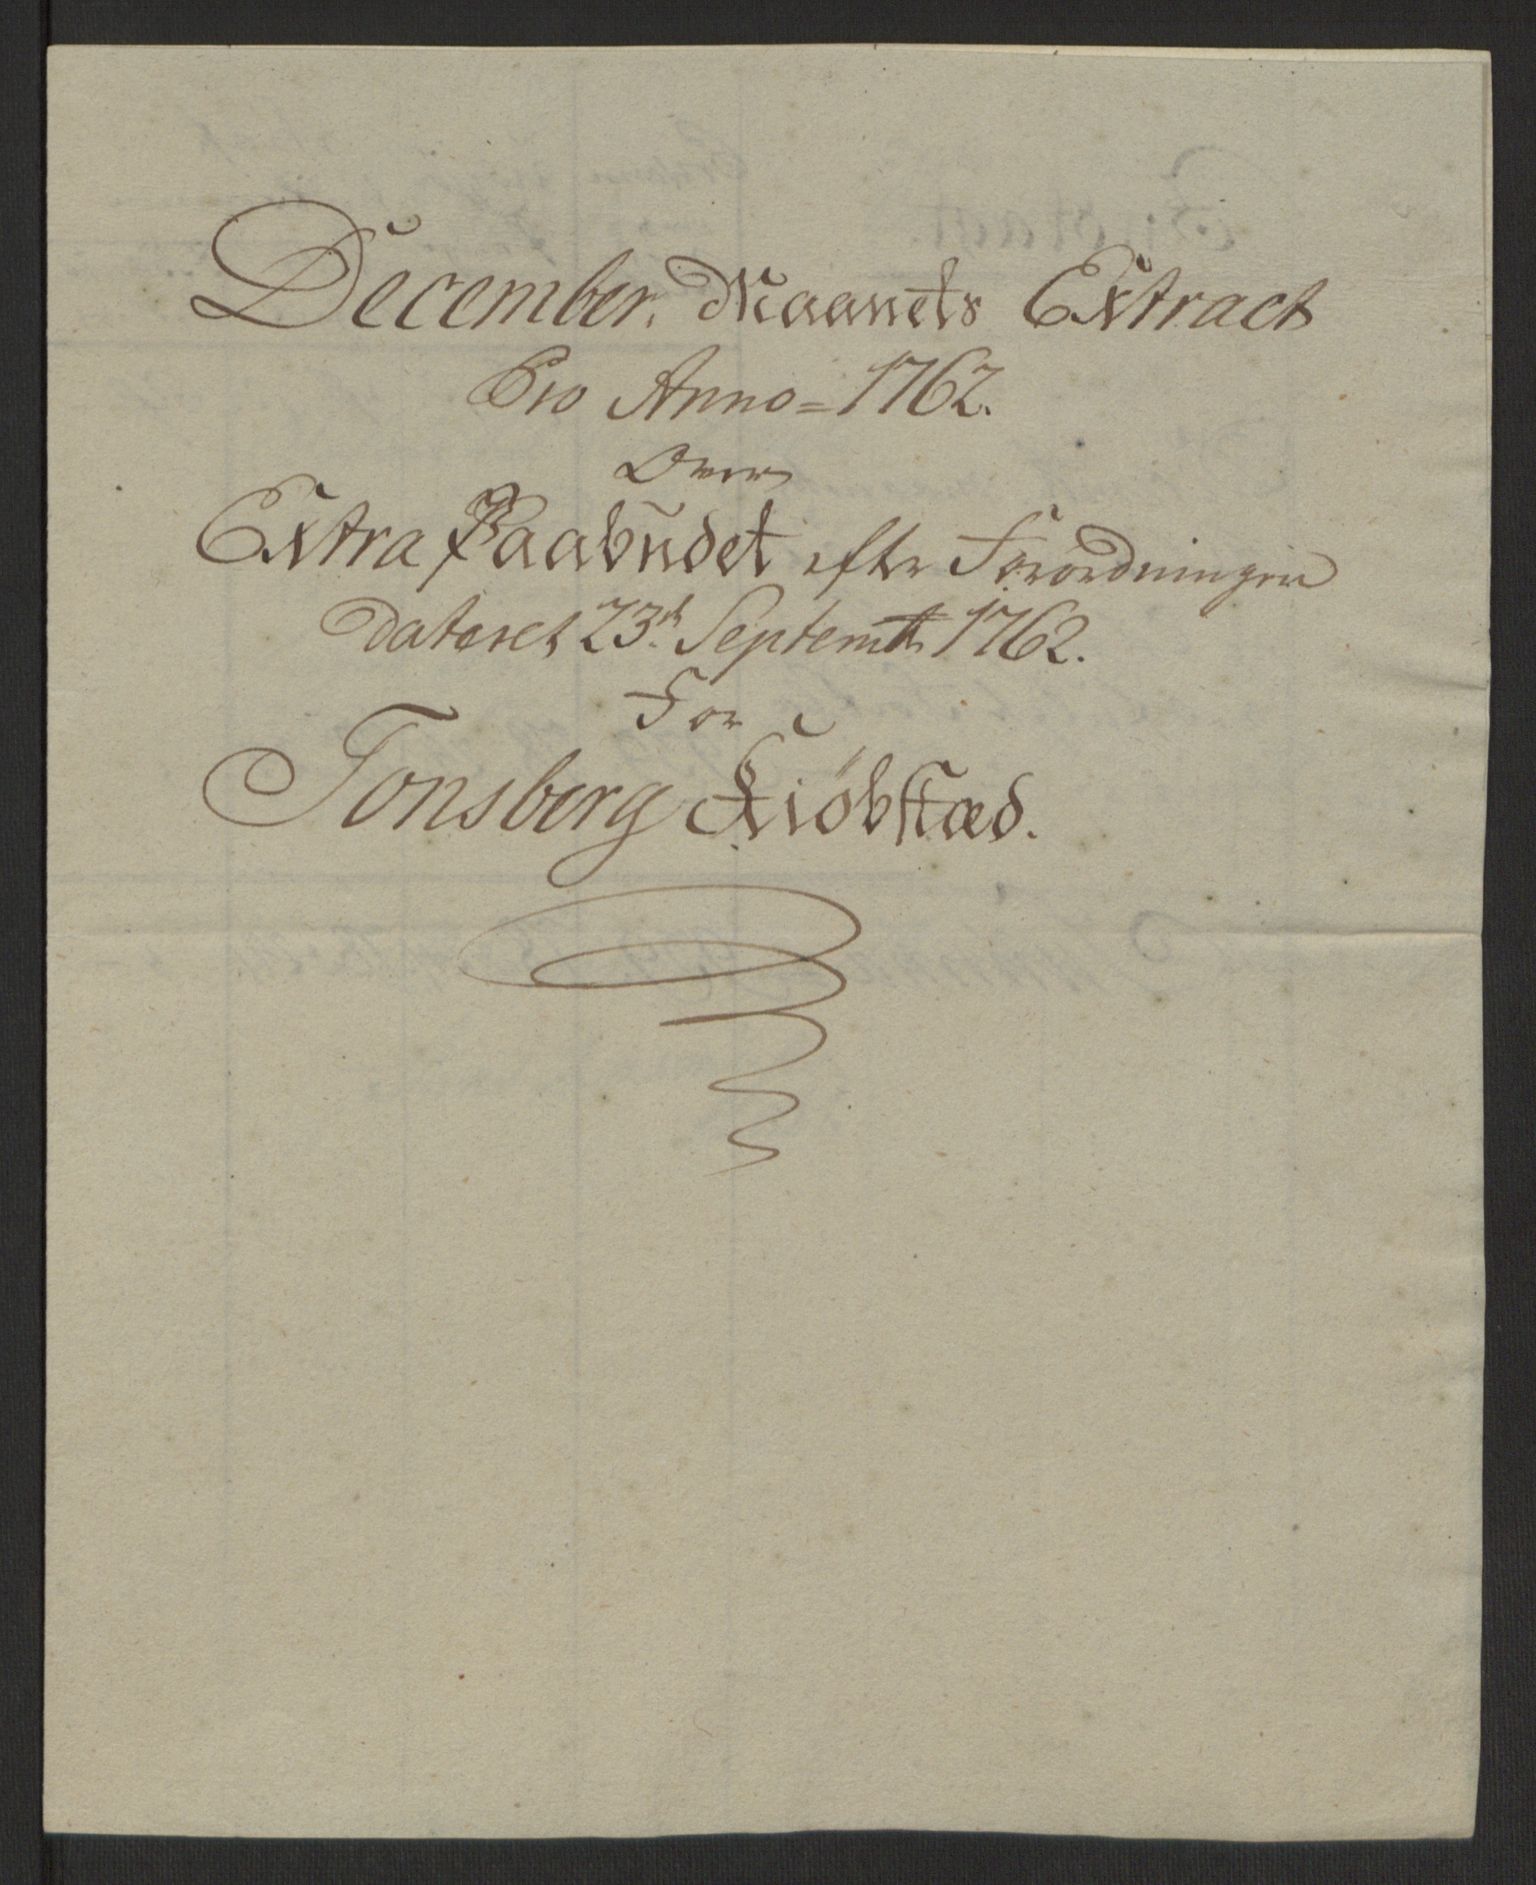 December, Maanets Extract
Pro Anno = 1762.
Over
Extra Paabudet efter Forordningen
Dateret 23d. Septembr 1762.
For
Tonsberg Kiöbstæd.